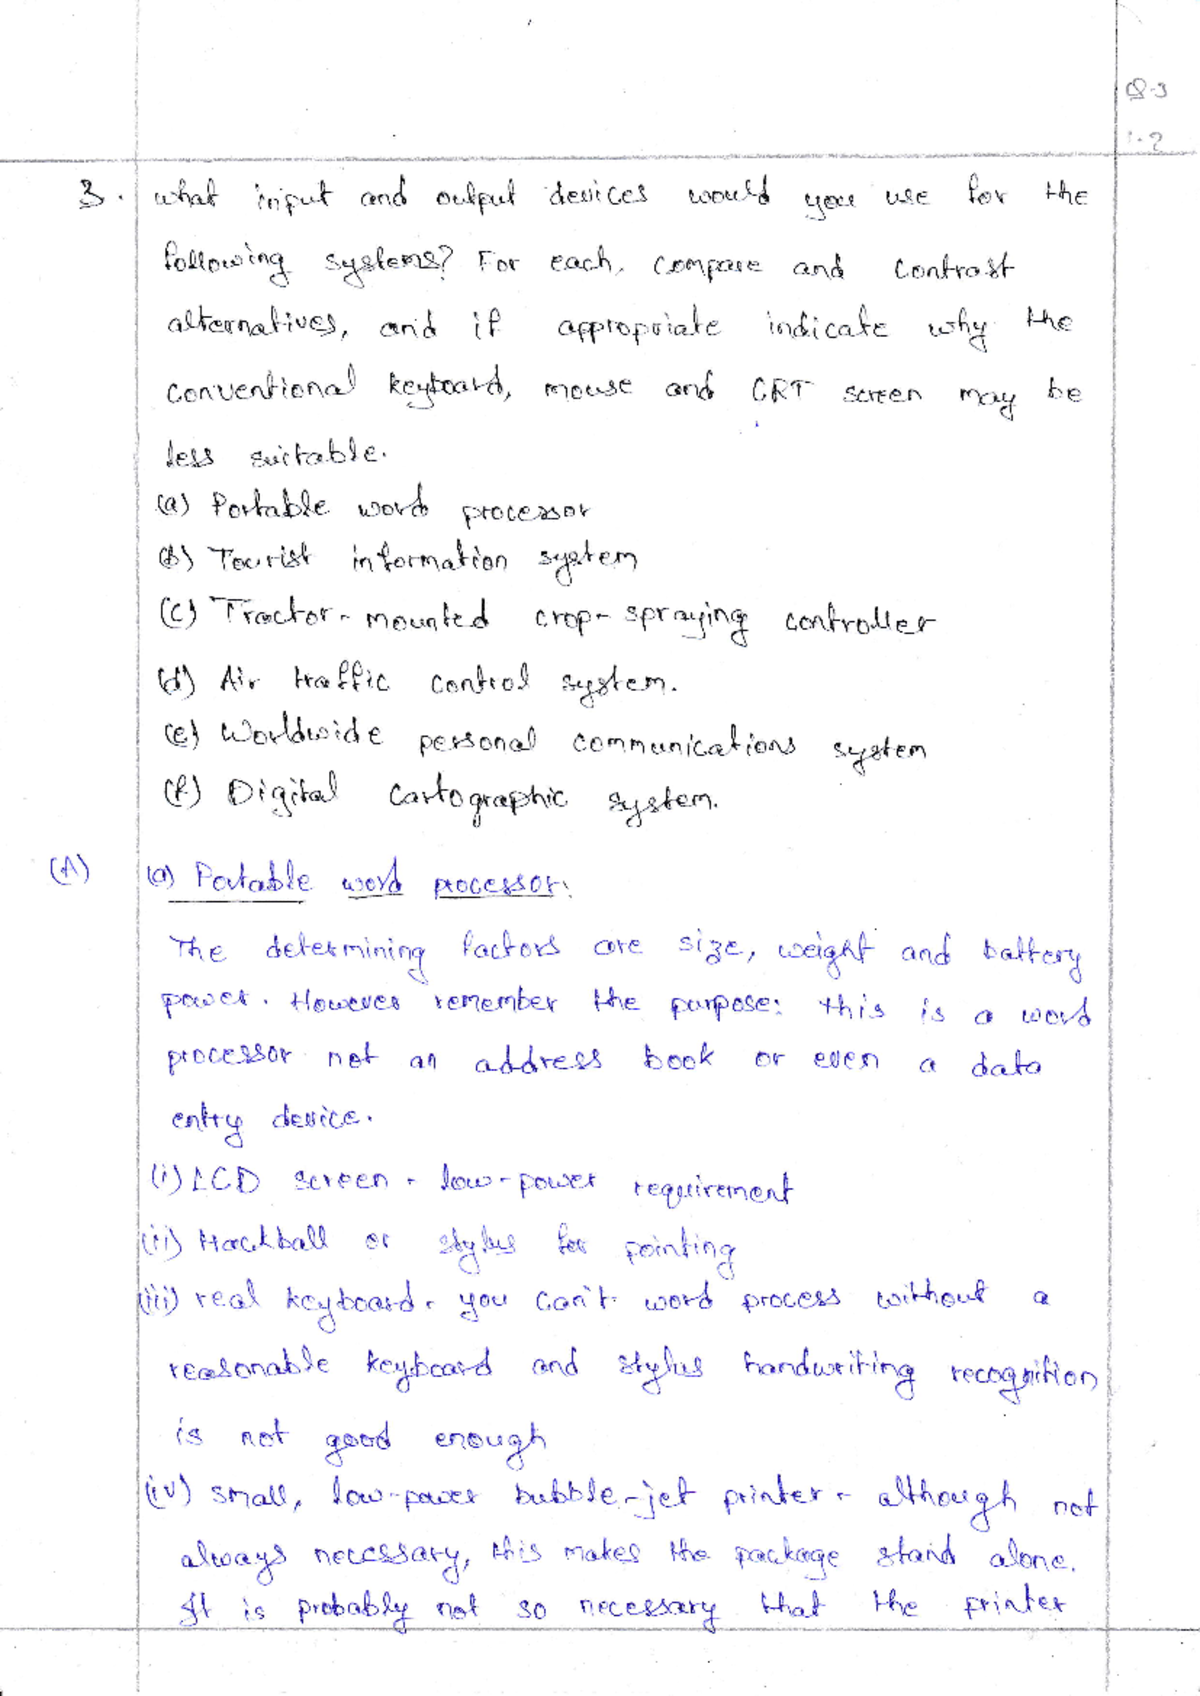 Q-3
1-2
3. what input and output devices would you use for the
following systems? For each, compare and contrast
alternatives, and if appropriate indicate why the
conventional keyboard, mouse and CRT screen may be
less suitable.
(a) Portable word processor
(b) Tourist information system
(c) Tractor-mounted crop-spraying controller
(d) Air traffic control system.
(e) Worldwide personal communications system
(f) Digital Cartographic system.
(A) (a) Portable word processor:
The determining factors are size, weight and battery
power. However remember the purpose: this is a word
processor not an address book or even a data
entry device.
(i) LCD screen - low-power requirement
(ii) trackball or stylus for pointing
(iii) real keyboard - you can't word process without a
reasonable keyboard and stylus handwriting recognition
is not good enough
(iv) small, low-power bubble-jet printer - although not
always necessary, this makes the package stand alone.
It is probably not so necessary that the printer